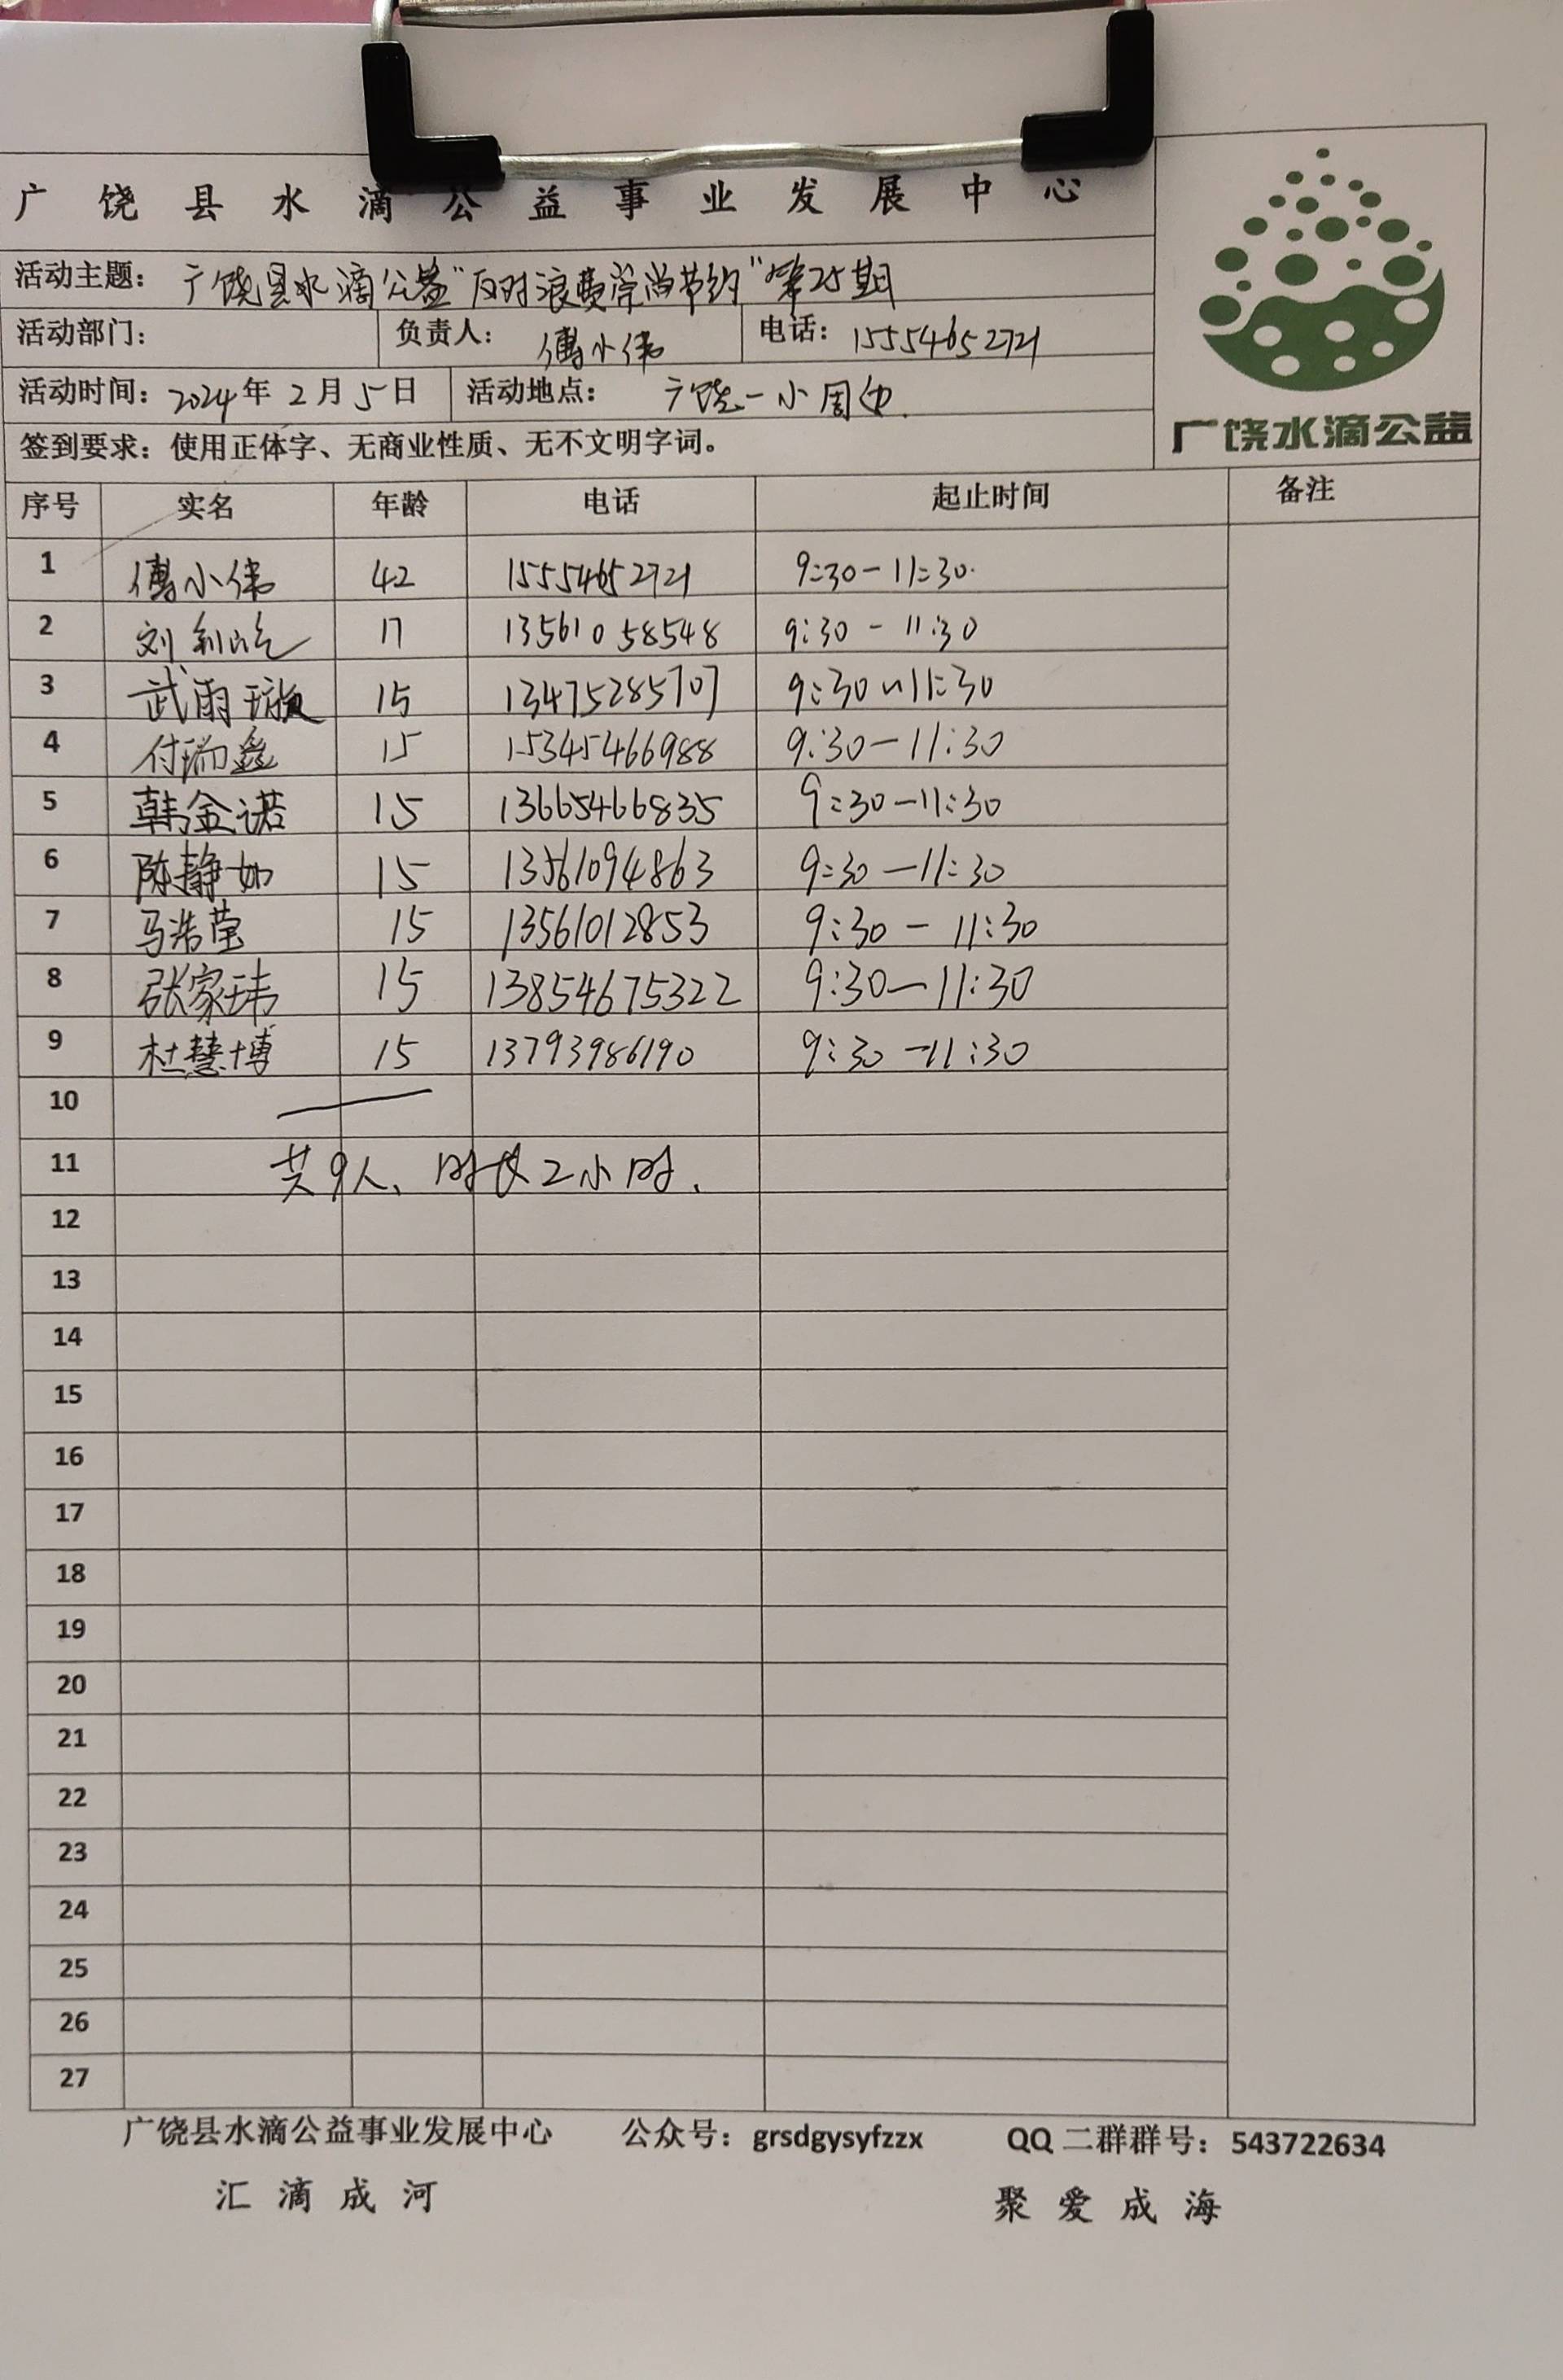 广饶县水滴公益事业发展中心
活动主题：广饶县水滴公益“反对浪费崇尚节约”第25期
活动部门： 负责人：傅小伟 电话：15554652721
活动时间：2024年2月5日 活动地点：广饶一小周边.
签到要求：使用正体字、无商业性质、无不文明字词。
广饶水滴公益
序号 实名 年龄 电话 起止时间 备注
1 傅小伟 42 15554652721 9:30-11:30.
2 刘 17 13561058548 9:30-11:30
3 武雨璇 15 13475285707 9:30~11:30
4 付瑞鑫 15 15345466988 9:30-11:30
5 韩金诺 15 13665466835 9:30-11:30
6 陈静如 15 13561094863 9:30-11:30
7 马浩莹 15 13561012853 9:30-11:30
8 张家玮 15 13854675322 9:30-11:30
9 杜慧博 15 13793986190 9:30-11:30
10
11 共9人、时长2小时.
12
13
14
15
16
17
18
19
20
21
22
23
24
25
26
27
广饶县水滴公益事业发展中心 公众号：grsdgysyfzzx QQ二群群号：543722634
汇滴成河 聚爱成海